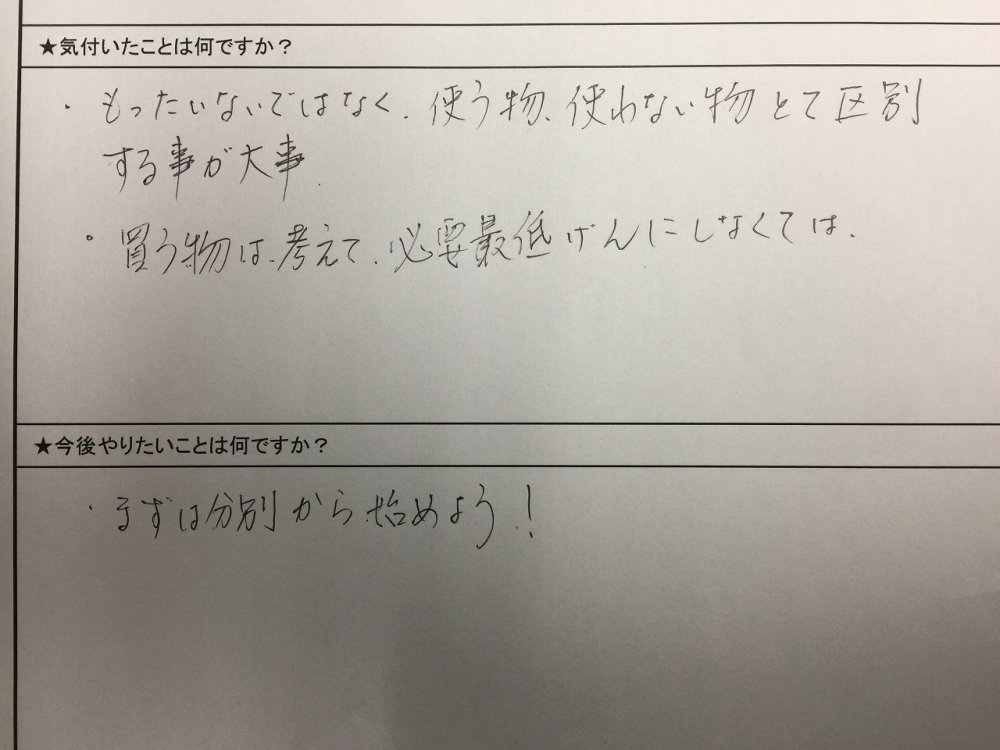 ★気付いたことは何ですか？
・もったいないではなく、使う物、使わない物とて区別
する事が大事
・買う物は、考えて、必要最低げんにしなくては、
★今後やりたいことは何ですか？
・まずは分別から始めよう！